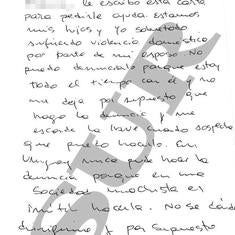 le escribo esta carta
para pedirle ayuda. Estamos
mis hijos y yo sobretodo
sufriendo violencia doméstica
por parte de mi esposo. No
puedo denunciarlo porque estoy
todo el tiempo con él y no
me deja por supuesto que
haga la denuncia y me
esconde la llave cuando sospecha
que puedo hacerlo. En
Uruguay nunca pude hacer la
denuncia porque en una
sociedad machista es
inútil hacerla. No sé dónde
dirigirme y por supuesto
SUR